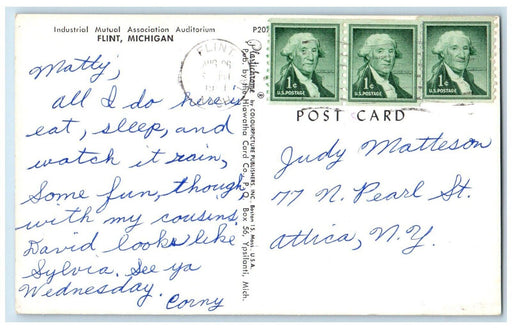 Industrial Mutual Association Auditorium
FLINT, MICHIGAN
P207
Matly,
all I do here is
eat, sleep, and
watch it rain,
Some fun, though
with my cousins.
David looks like
Sylvia. See ya
Wednesday.
Corny
Plastichrome ® by COLOURPICTURE PUBLISHERS, INC. Boston 15, Mass. U.S.A.
Pub. by The Hiawatha Card Co., P. O. Box 56, Ypsilanti, Mich.
FLINT
1¢
U.S. POSTAGE
1¢
U.S. POSTAGE
1¢
U.S. POSTAGE
POST CARD
Judy Matteson
77 N. Pearl St.
Attica, N.Y.